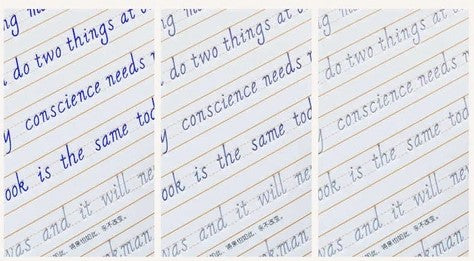 ng
do two things at
conscience needs
ook is the same tod
was and it will nev
kman
ng
do two things at
conscience needs
ook is the same tod
was and it will nev
kman
ng
do two things at
conscience needs
ook is the same tod
was and it will nev
kman